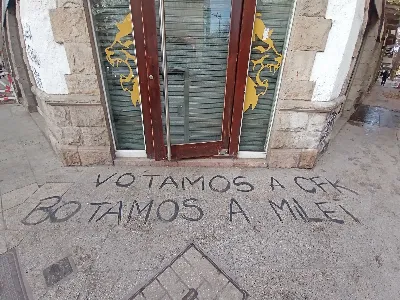 VOTAMOS A CFK
BOTAMOS A MILEI